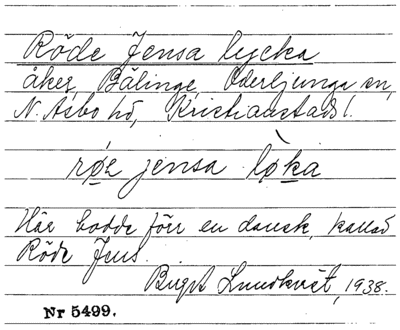 Röde Jensa lycka
åker, Bälinge, Oderljunga sn,
N. Åsbo hd, Kristianstads l.
rø̱e jensa lø̀ḵa
Här bodde förr en dansk, kallad
Röde Jens.
Birgit Lundkvist, 1938.
Nr 5499.